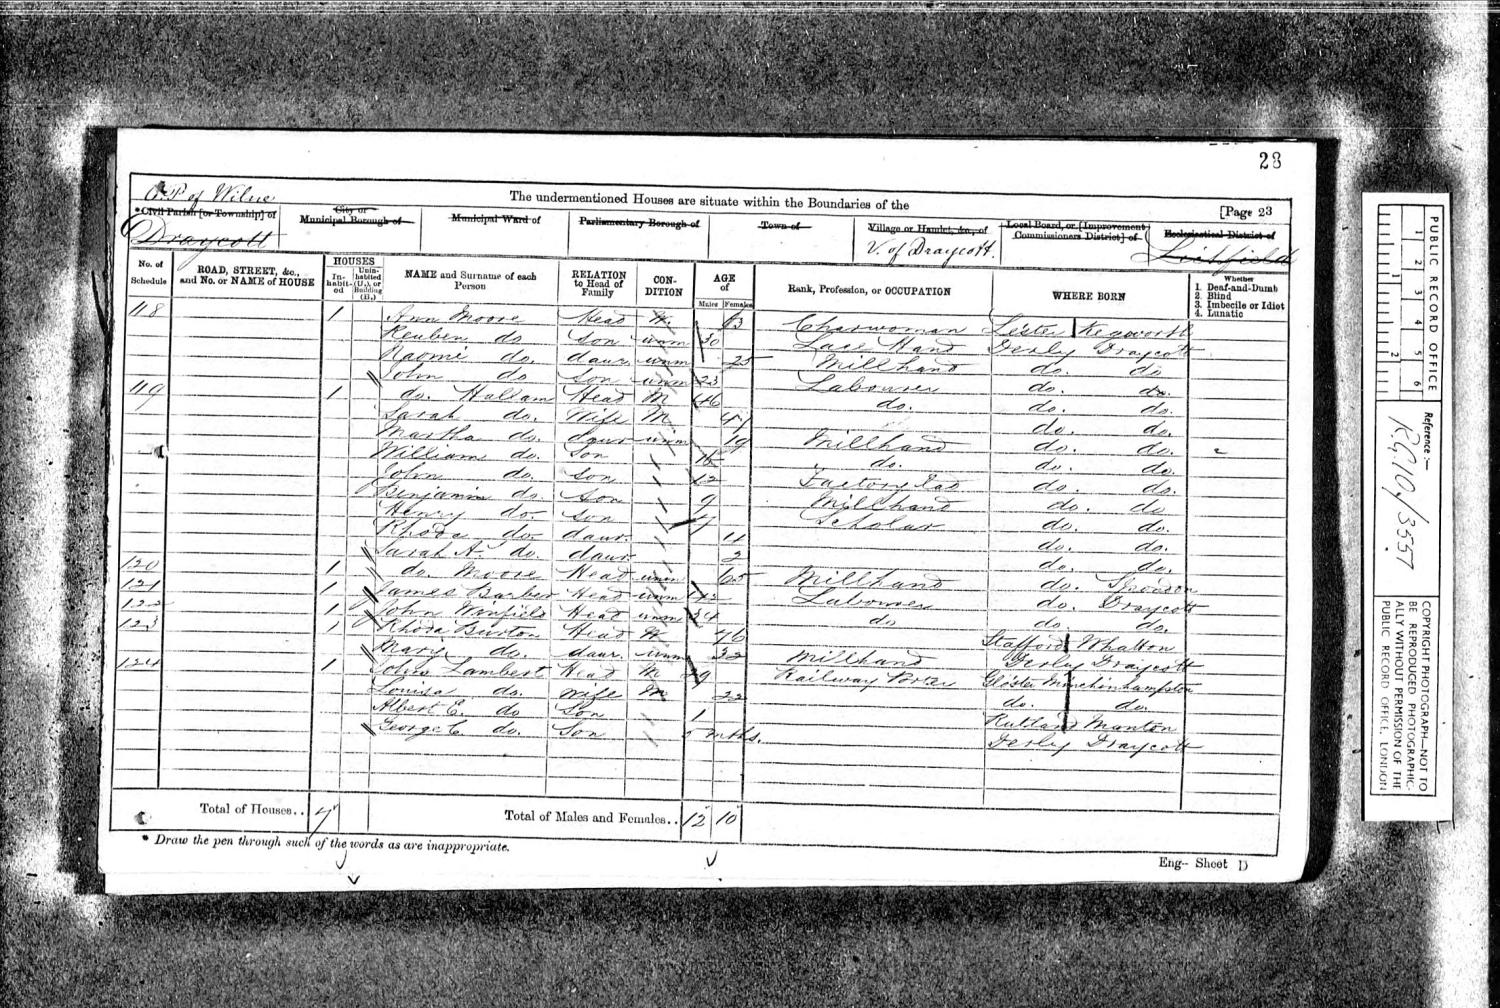 28
The undermentioned Houses are situate within the Boundaries of the
[Page 23
P. of Wilne
*Civil Parish [or Township] of
City or Municipal Borough of
Municipal Ward of
Parliamentary Borough of
Town of
Village or Hamlet, &c., of
Local Board, or [Improvement Commissioners District] of
Ecclesiastical District of
Draycott
V. of Draycott.
Lichfield
No. of Schedule
ROAD, STREET, &c., and No. or NAME of HOUSE
HOUSES
In-habit-ed
Unin-habited (U.), or Building (B.)
NAME and Surname of each Person
RELATION to Head of Family
CON-DITION
AGE of
Males
Females
Rank, Profession, or OCCUPATION
WHERE BORN
Whether
1. Deaf-and-Dumb
2. Blind
3. Imbecile or Idiot
4. Lunatic
118 1 Ann Moore Head W. Charwoman Léster Kegworth
Reuben do son unm 30 Lace Hand Derby Draycott
Naomi do. daur. unm 25 Millhand do. do
John do son unm 23 Labourer do. do.
119 1 do. Hallam Head M 46 do. do. do.
Sarah do. Wife M 47 do. do.
Martha do. daur unm 19 Millhand do. do.
William do. Son 15 do. do. do.
John do. son 12 Factory Lad do. do.
Benjamin do. Son 9 Millhand do. do
Henry do. son 7 Scholar do. do.
Rhoda do. daur. 4 do. do.
Sarah A. do. daur. 2 do. do.
120 1 do. Moore Head unm 65 Millhand do.
121 1 James Barber Head unm Labourer do. Draycott
122 1 John Winfield Head unm 34 do do do.
123 1 Rhoda Burton Head W 46 Stafford Whatton
Mary do. daur. unm 22 Millhand Derby Draycott
124 1 John Lambert Head M 29 Railway Porter Glóster Minchinhampton
Louisa do. Wife M 22 do. do.
Albert E. do Son 1 Rutland Manton
George C. do. Son 5 mths. Derby Draycott
Total of Houses.. 7
Total of Males and Females.. 12 10
* Draw the pen through such of the words as are inappropriate.
Eng-- Sheet D
PUBLIC RECORD OFFICE
1 2 3 4 5 6
1 2
Reference :-
RG10/3557
COPYRIGHT PHOTOGRAPH—NOT TO
BE REPRODUCED PHOTOGRAPHIC-
ALLY WITHOUT PERMISSION OF THE
PUBLIC RECORD OFFICE, LONDON